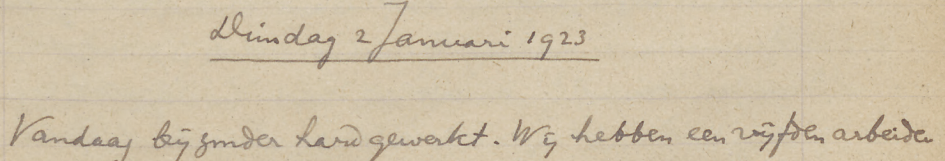 Dinsdag 2 Januari 1923
Vandaag bijzonder hard gewerkt. Wij hebben een vijfden arbeider